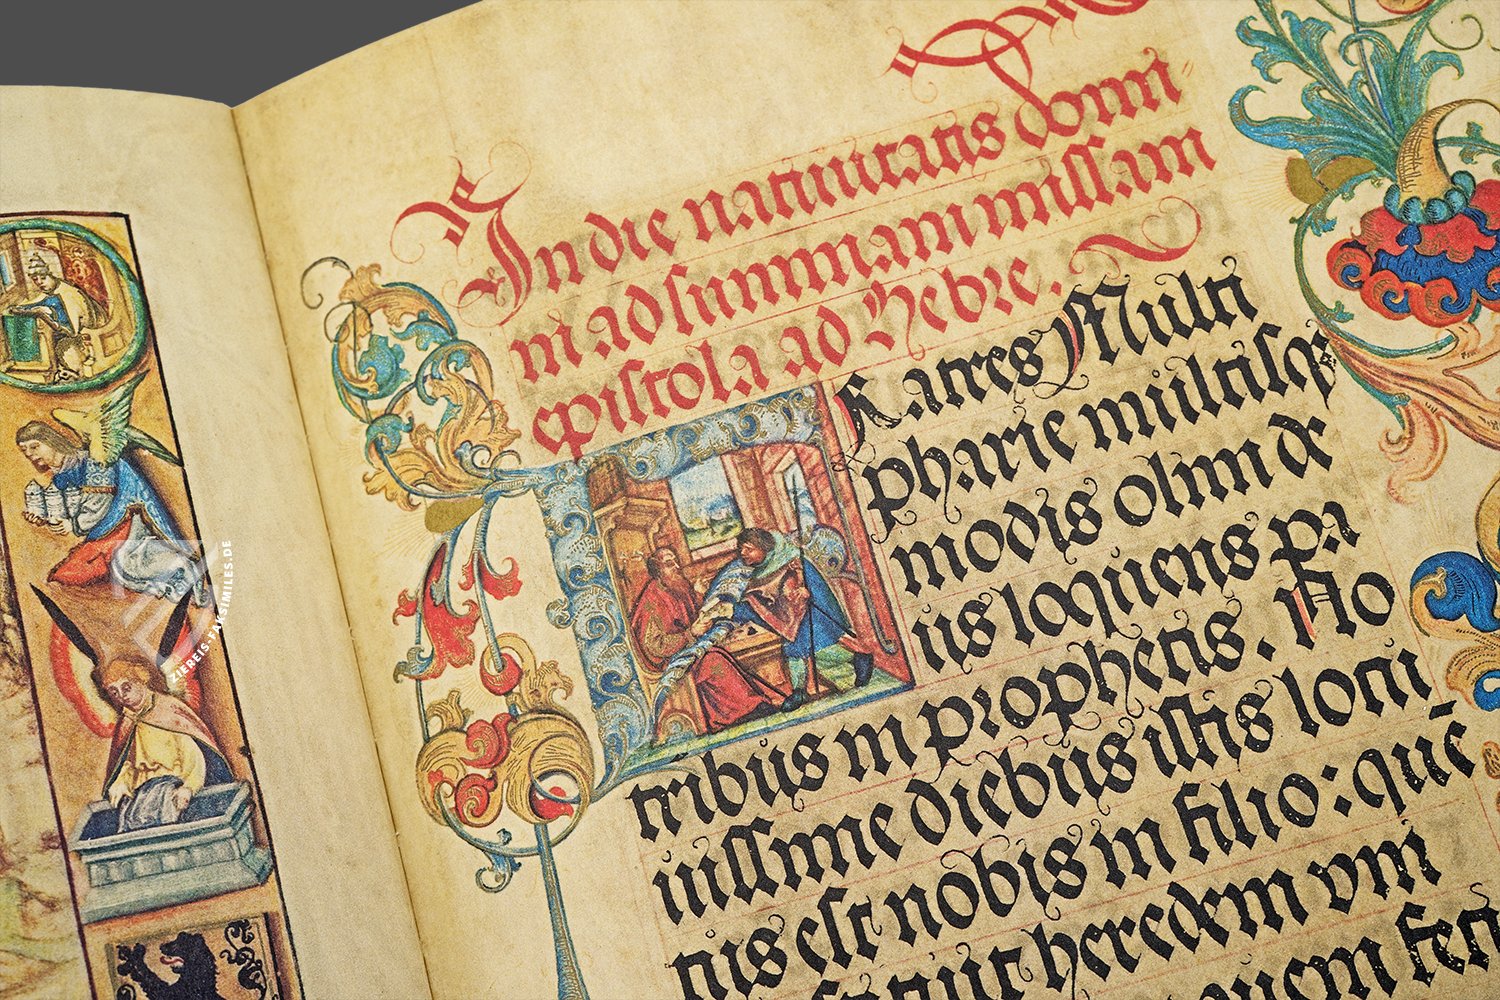 In die natiuitatis domi-
ni ad summam missam
epistola ad Hebre.
Fratres Multi
pharie multisqꝫ
modis olim &
deus loquens pa
tribus in prophetis. No
uissime diebus istis locu
tus est nobis in filio: quē
heredem vni
ZIEREIS-FAKSIMILES.DE